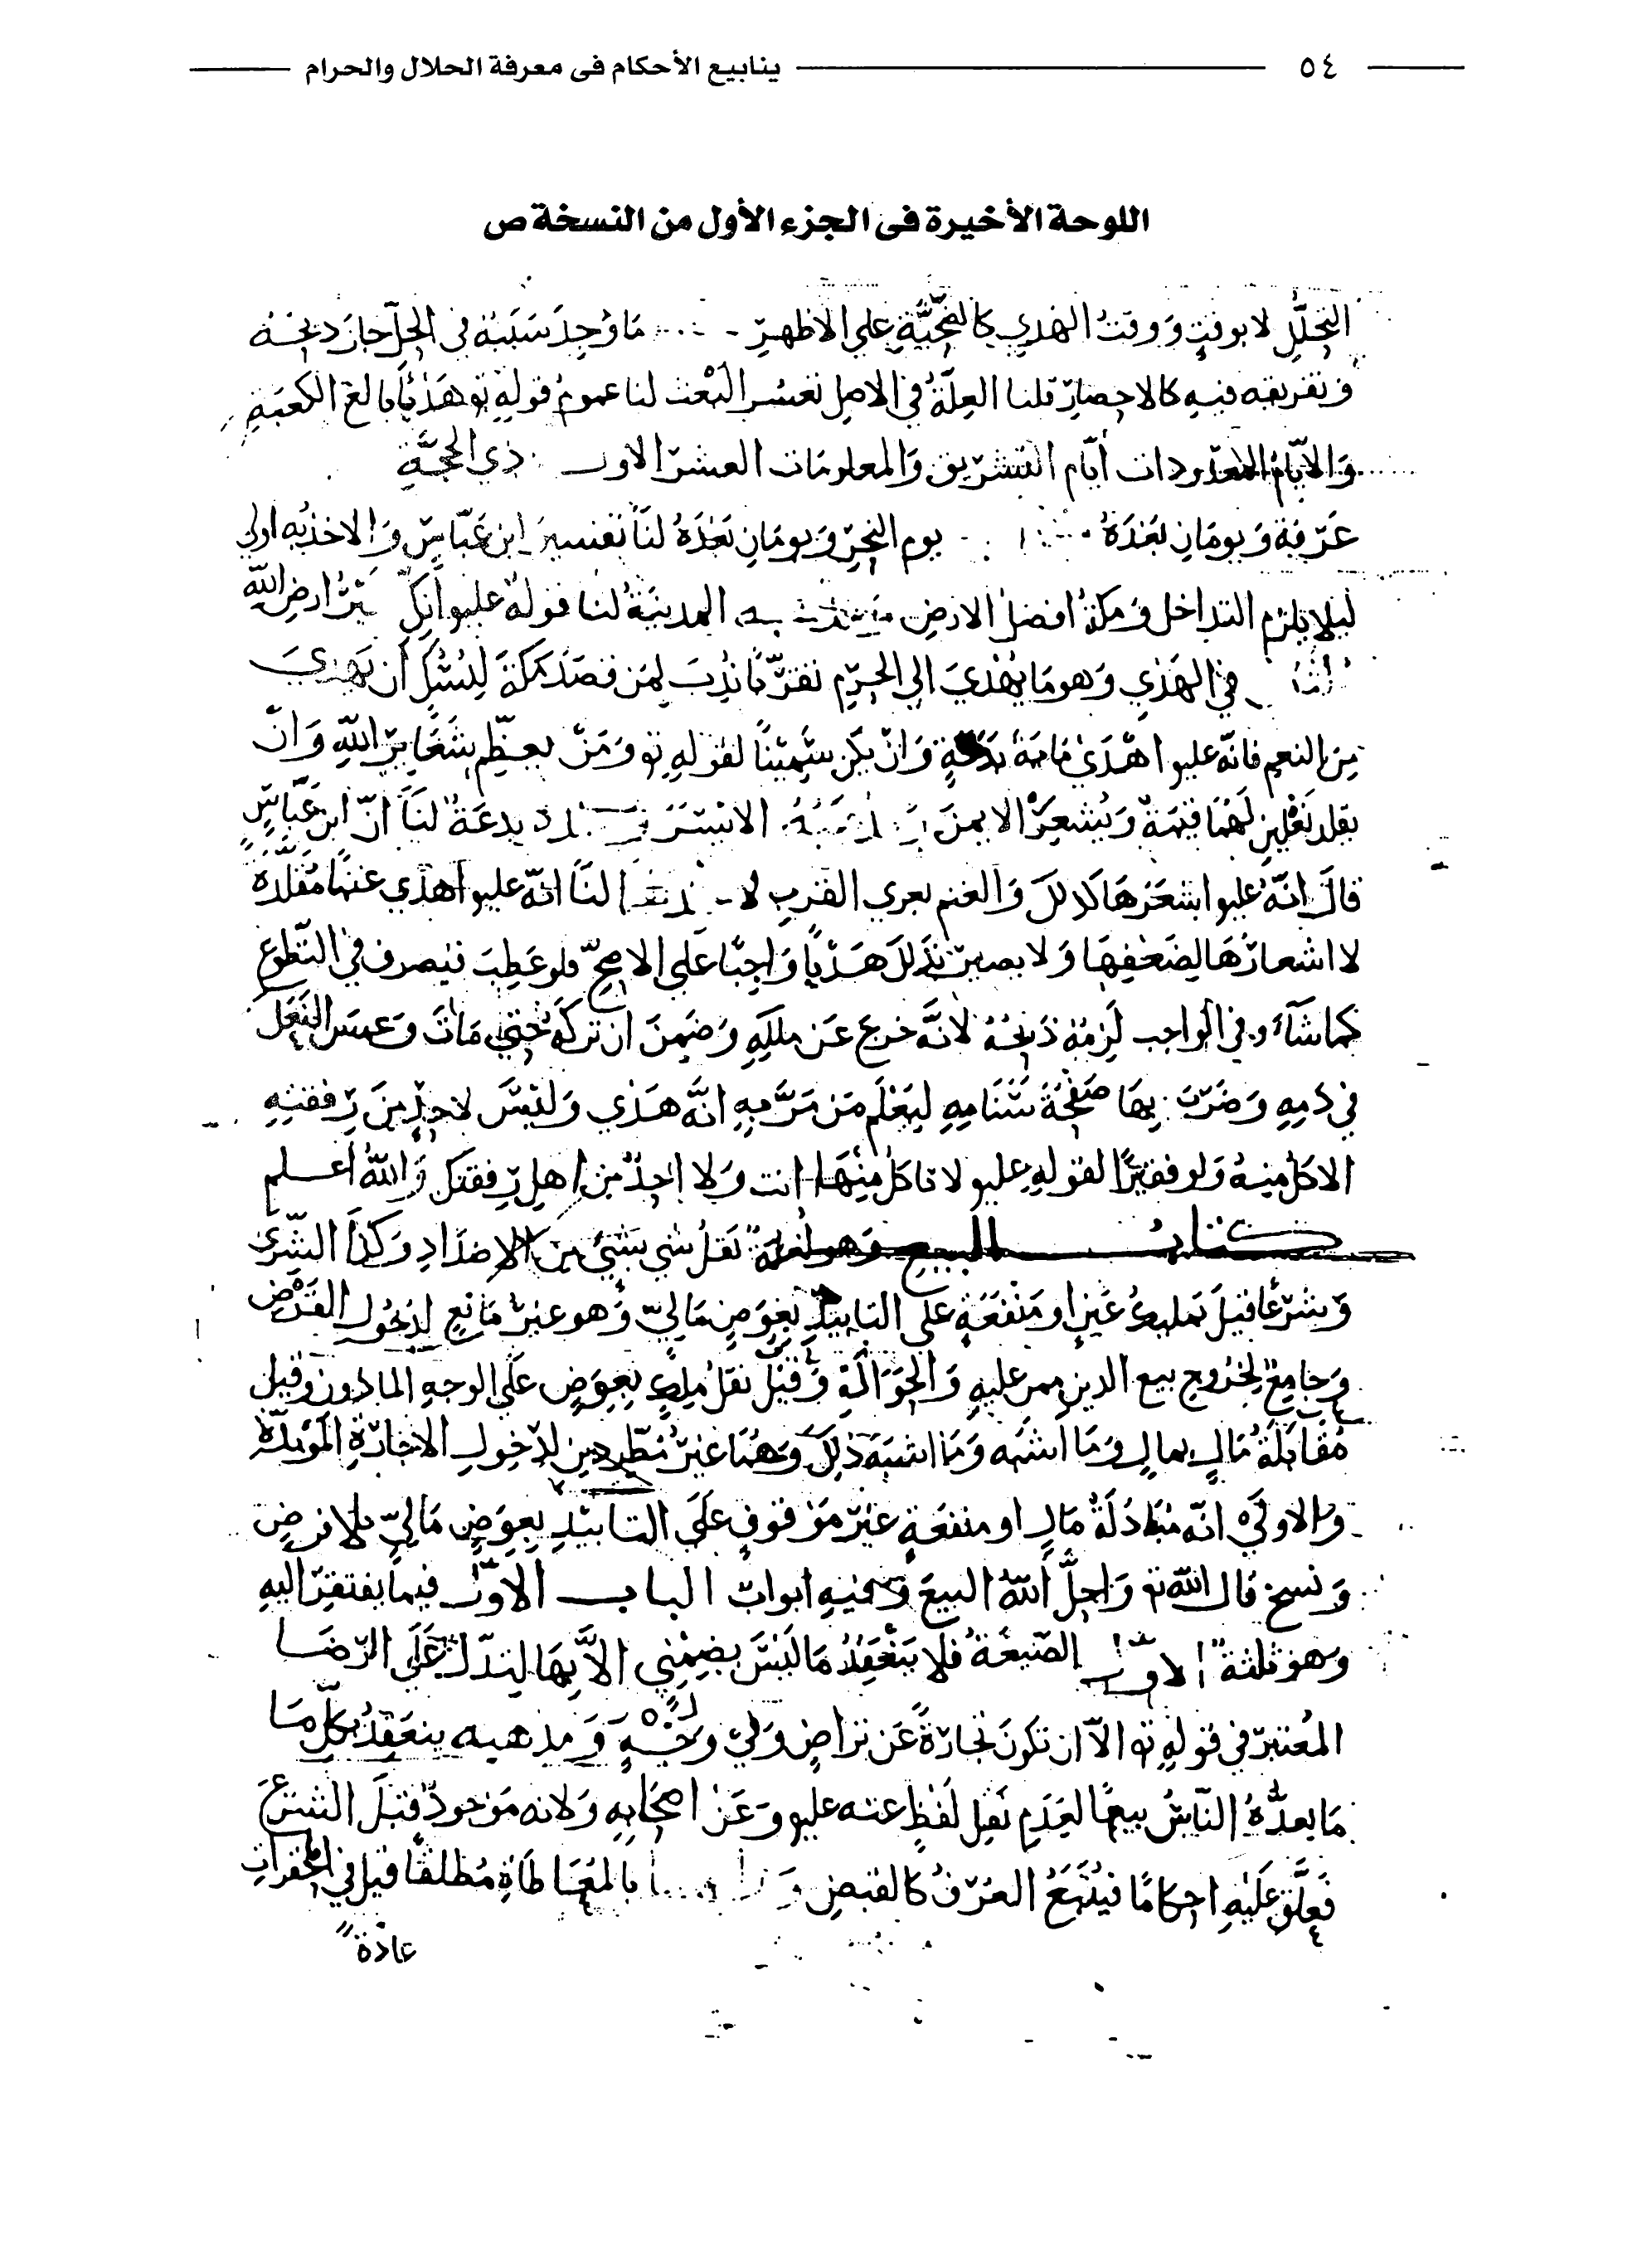 ٥٤ ينابيع الأحكام فى معرفة الحلال والحرام
اللوحة الأخيرة فى الجزء الأول من النسخة ص
التحلل لا بوقت ووقت الهدي كالضحية على الاظهر ما وجد سببه في الحل جاز ذبحه
وتفريقه فيه كالاحصار قلنا العلة في الاصل تعسر البعث لنا عموم قوله تو هديا بالغ الكعبة
والايام المعدودات أيام التشريق والمعلومات العشر الاول ذي الحجة
عرفة ويومان بعده يوم النحر ويومان بعده لنا تفسير ابن عباس والاخذ به اولى
ليلا يلزم التداخل ومكة افضل الارض المدينة لنا قوله عليو انك ارض الله
في الهدي وهو ما يهدي الي الحرم تقربا ندب لمن قصد مكة لنسك أن يهدي
من النعم فانه عليو اهدي ماية بدنة وان يكن سمينا لقوله تو ومن يعظم شعاير الله وان
يقلد نعلين لهما قيمة ويشعر الايمن الايسر بدعة لنا ان ابن عباس
قال انه عليو اشعرها كذلك والغنم بعري القرب لا لنا انه عليو اهدي غنما مقلدة
لا اشعارها لضعفها ولا يصير بذلك هديا واجبا على الاصح فلو عطب فيصرف في التطوع
كما شآء وفي الواجب لزمه ذبحه لانه خرج عن ملكه وضمن ان تركه حتي مات وغمس النعل
في دمه وضرب بها صفحة سنامه ليعلم من مر به انه هدي وليس لاحد من رفقته
الاكل منه ولو فقيرا لقوله عليو لا تاكل منها انت ولا احد من اهل رفقتك والله اعلم
كتاب البيع وهو لغة نقل شي بشئ من الاضداد وكذا الشرى
وشرعا قيل تمليك عين او منفعة على التابيد بعوض مالي وهو غير مانع لدخول القرض
وجامع لخروج بيع الدين ممن عليه والحوالة وقيل نقل ملك بعوض على الوجه الماذون وقيل
مقابلة مال بمال وما اشبه وما اشبه ذلك وهما غير مطردين لدخول الاجارة المؤبدة
والاولى انه مبادلة مال او منفعة غير موقوف على التابيد بعوض مالي بلا قرض
ونسخ قال الله تو واحل الله البيع وفيه ابواب الباب الاول فيما يفتقر اليه
وهو ثلثة الاول الصيغة فلا ينعقد ما ليس بضمني الا بها ليدل على الرضا
المعتبر في قوله تو الا ان تكون تجارة عن تراض ولي وجه ومذهبه ينعقد بكل ما
ما يعده الناس بيعا لعدم نقل لفظ عنه عليو وعن اصحابه ولانه موجود قبل الشرع
فعلق عليه احكاما فيتبع العرف كالقبض بالمعاطاة مطلقا قيل في المحقرات
عادة